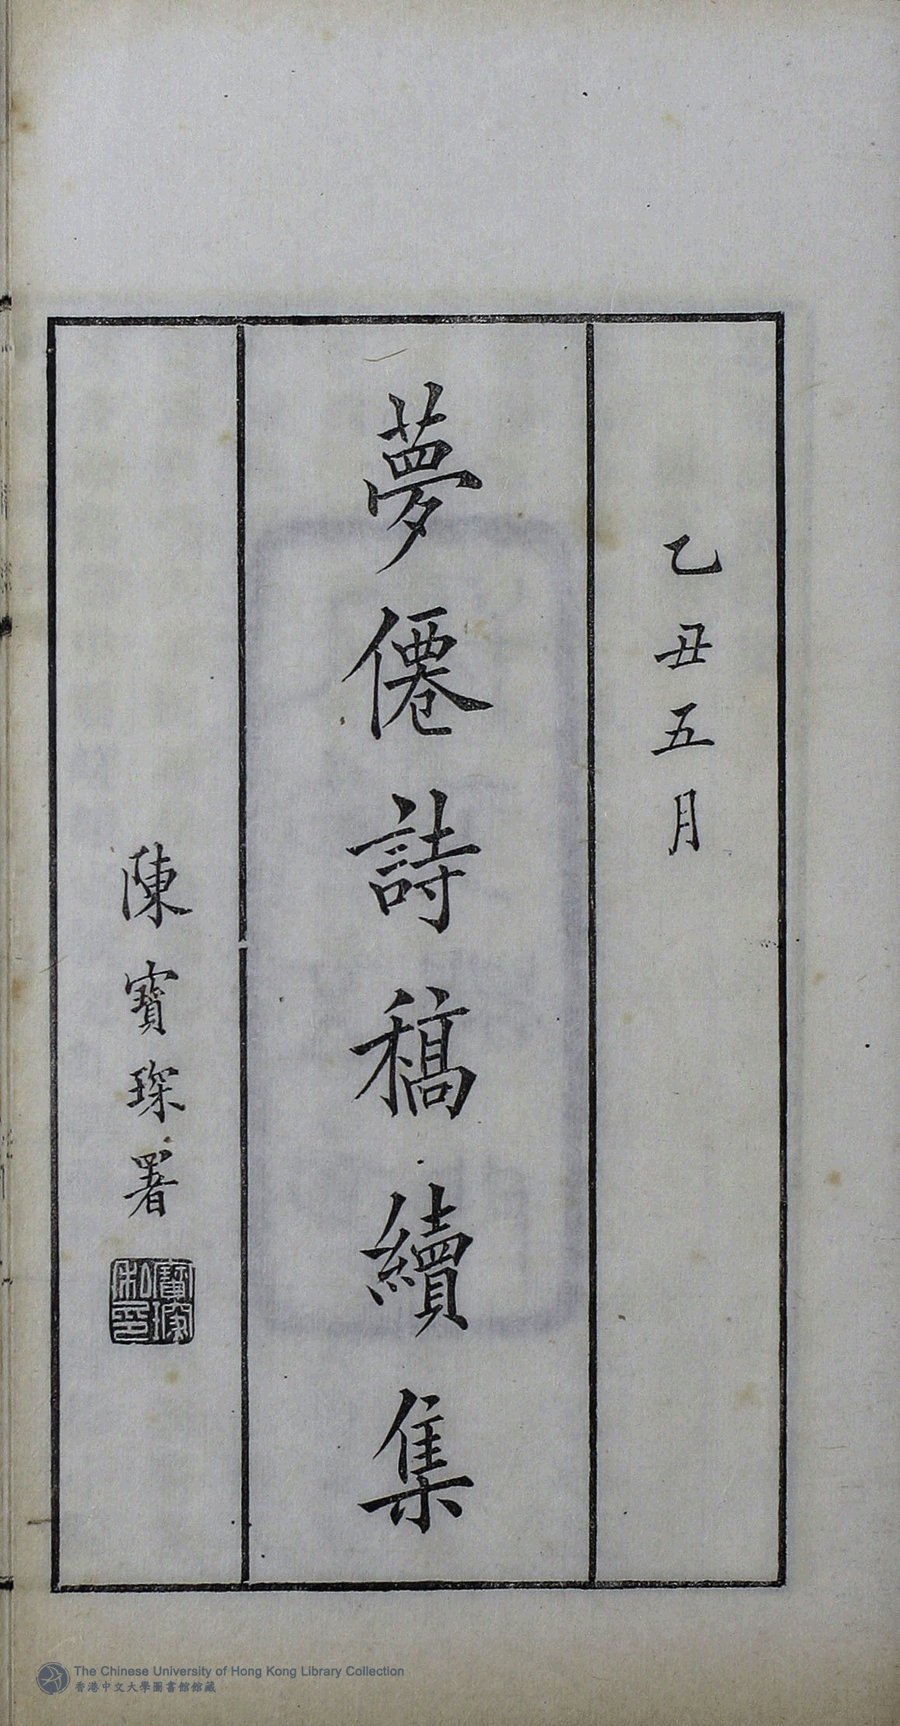 乙丑五月
夢僊詩稿續集
陳寶琛署
寶琛私印
The Chinese University of Hong Kong Library Collection
香港中文大學圖書館館藏